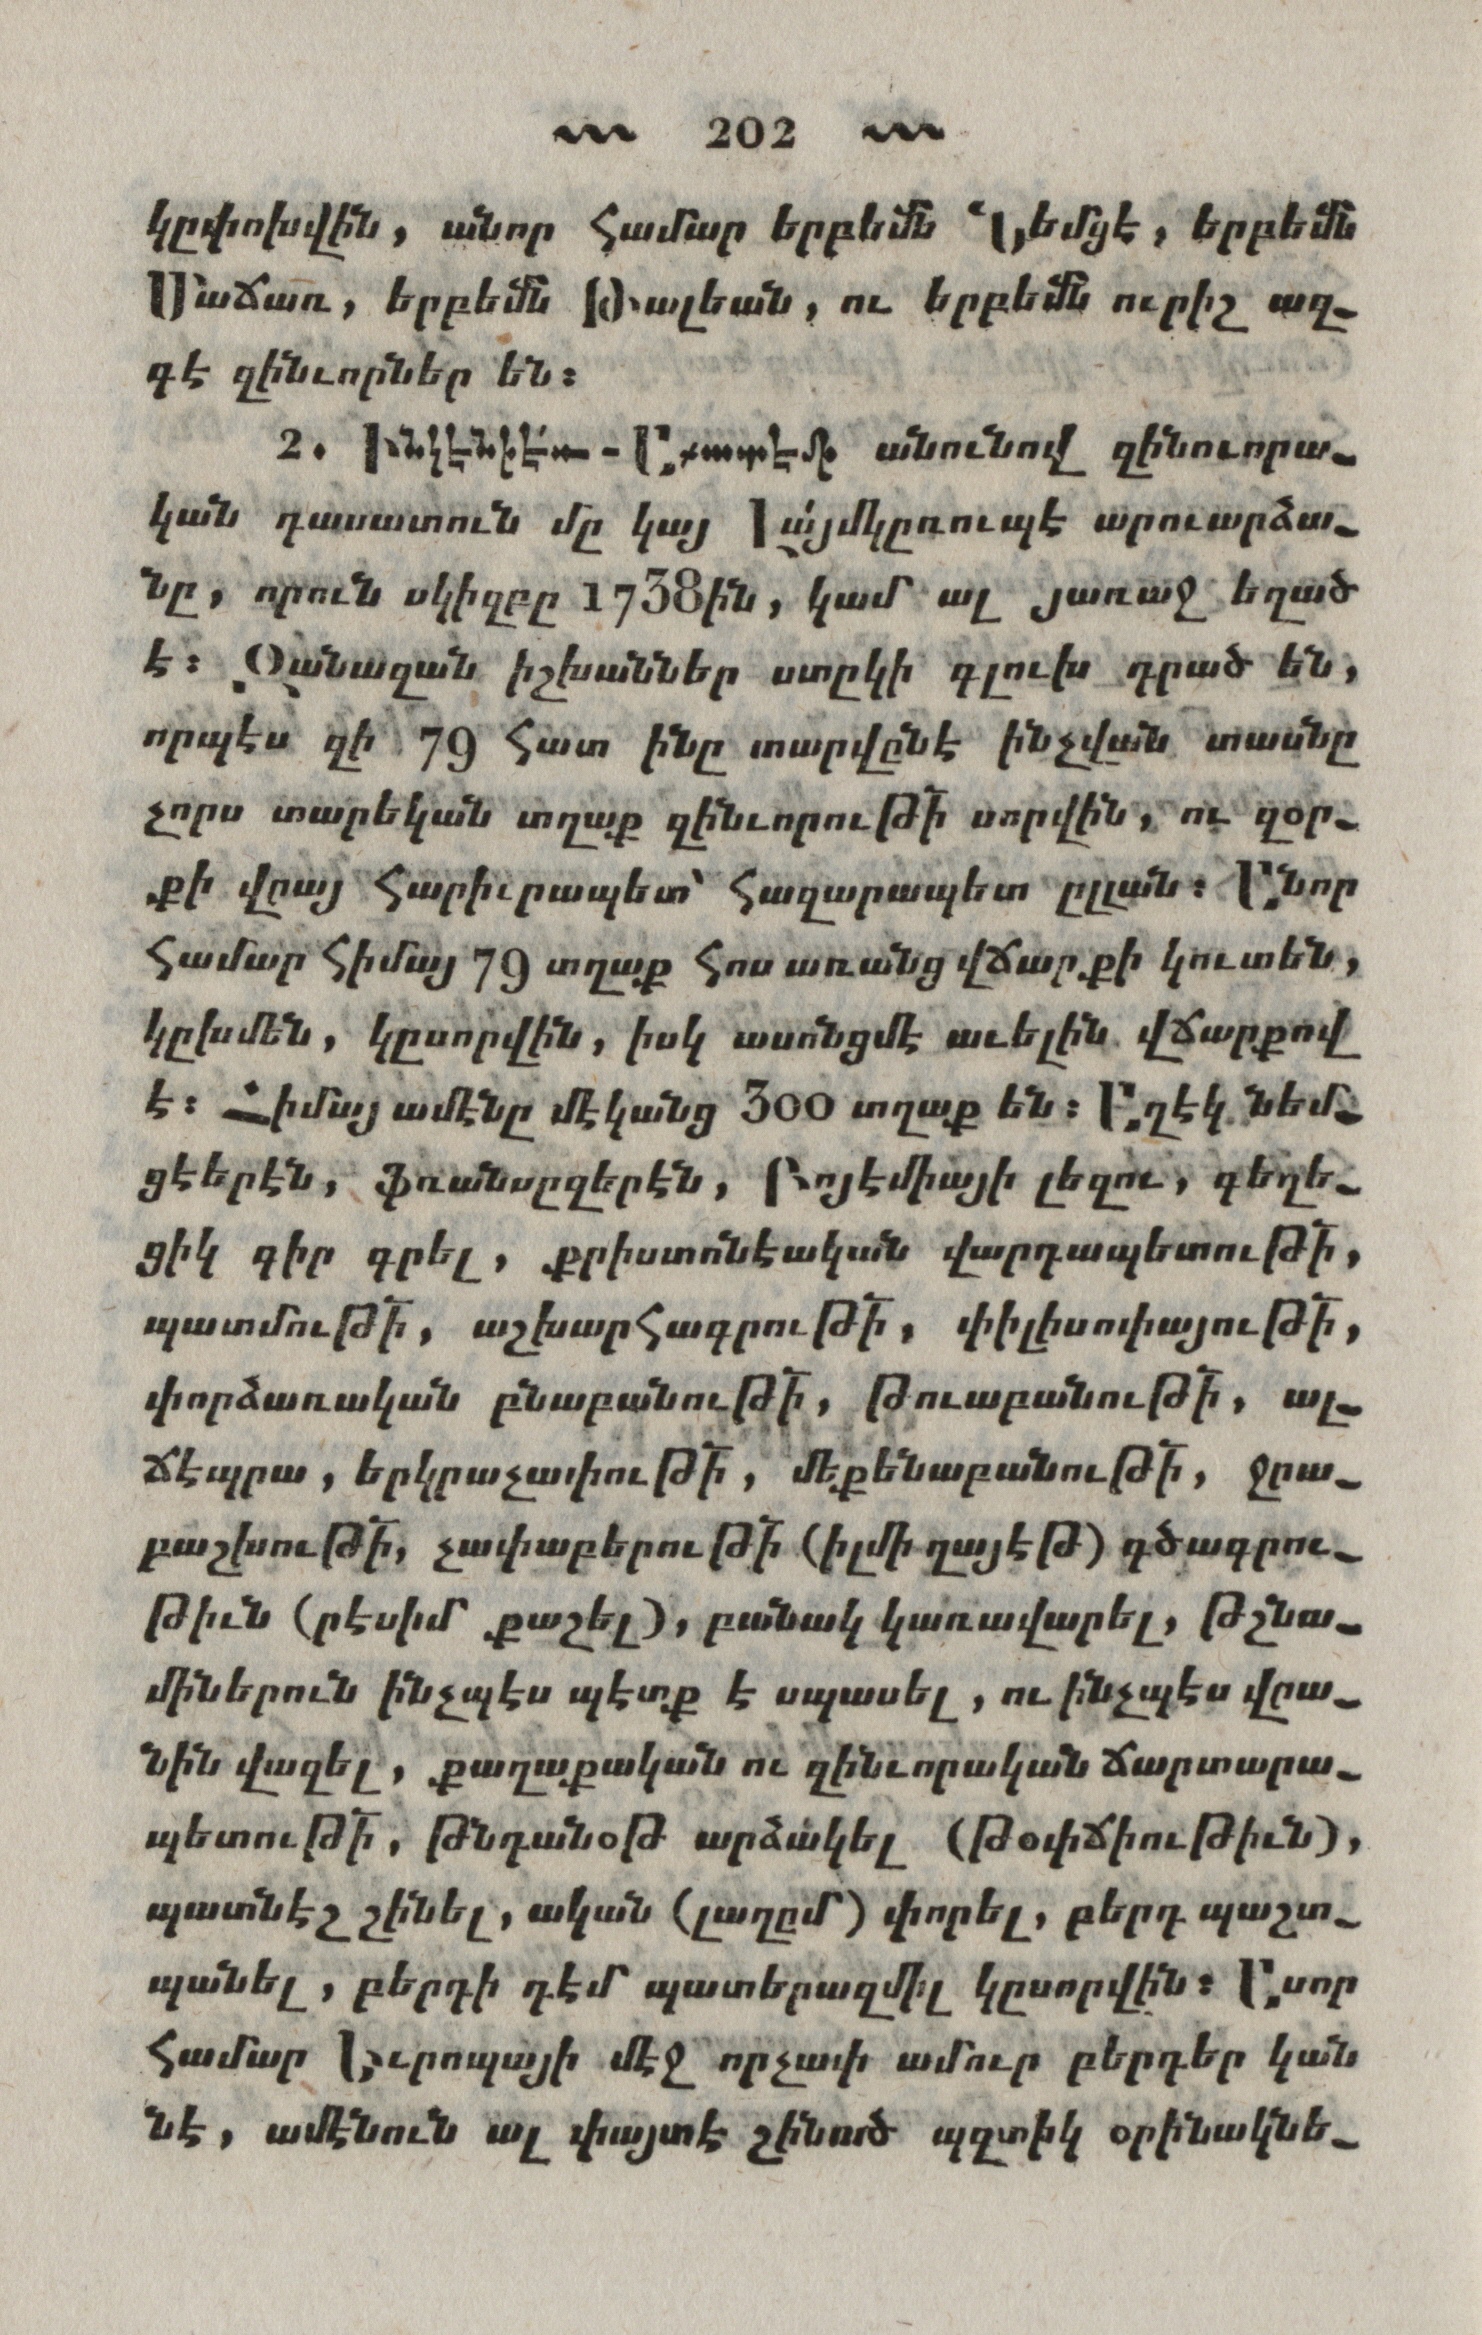 202
կըփոխվին, անոր համար երբեմն Նեմցէ, երբեմն
Մաճառ, երբեմն Թալեան, ու երբեմն ուրիշ ազ֊
գէ զինւորներ են։
2. Ինկէնիէօռ - Ագատէմի անունով զինուորա֊
կան դասատուն մը կայ Լայմկըռուպէ արուարձա֊
նը, որուն սկիզբը 1738ին, կամ ալ յառաջ եղած
է։ Զանազան իշխաններ ստըկի գլուխ դրած են,
որպէս զի 79 հատ ինը տարվընէ ինչվան տասնը
չորս տարեկան տղաք զինւորութի սորվին, ու զօր֊
քի վըայ հարիւրապետ՝ հազարապետ ըլլան։ Անոր
համար հիմայ 79 տղաք հոս առանց վճարքի կուտեն,
կըխմեն, կըսորվին, իսկ ասոնցմէ աւելին վճարքով
է։ Հիմայ ամէնը մէկանց 300 տղաք են։ Աղէկ նեմ֊
ցէերէն, ֆռանսըզերէն, Բոյէմիայի լեզու, գեղե֊
ցիկ գիր գրել, քրիստոնէական վարդապետութի՛,
պատմութի՛, աշխարհագրութի՛, փիլիսոփայութի՛,
փորձառական բնաբանութի՛, թուաբանութի՛, ալ֊
ճէպրա, երկրաչափութի՛, մեքենաբանութի՛, ջրա֊
բաշխութի՛, չափաբերութի՛ (իլմի ղայէթ) գծագրու֊
թիւն (րէսիմ քաշել), բանակ կառավարել, թշնա֊
միներուն ինչպէս պէտք է սպասել, ու ինչպէս վըա֊
նին վազել, քաղաքական ու զինւորական ճարտարա֊
պետութի՛, թնդանօթ արձակել (թօփճիութիւն),
պատնէշ շինել, ական (լաղըմ) փորել, բերդ պաշտ֊
պանել, բերդի դէմ պատերազմիլ կըսորվին։ Ասոր
համար Եւրոպայի մէջ որչափ ամուր բերդեր կան
նէ, ամէնուն ալ փայտէ շինած պզտիկ օրինակնե֊